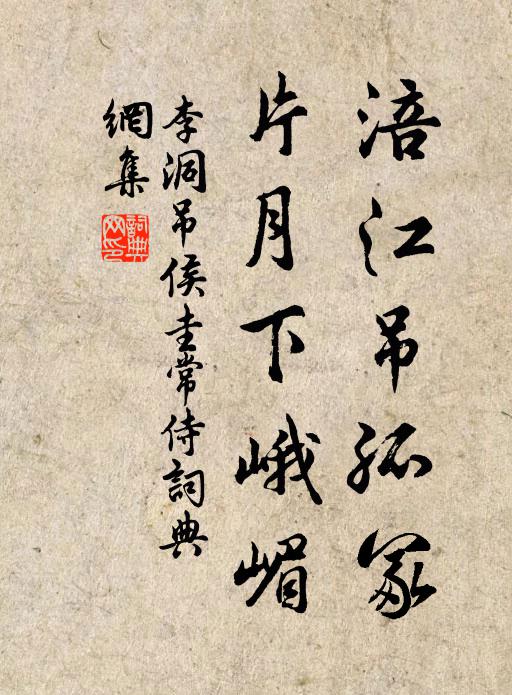 涪江吊孤冢
片月下峨嵋
李洞吊侯圭常侍詞典
網集
詞典網印